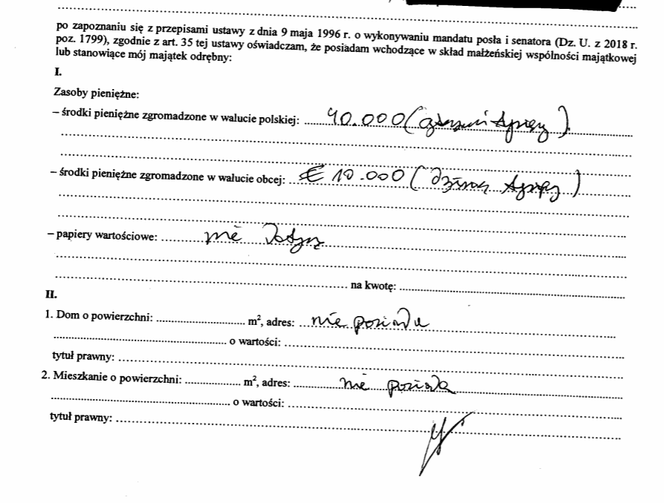 po zapoznaniu się z przepisami ustawy z dnia 9 maja 1996 r. o wykonywaniu mandatu posła i senatora (Dz. U. z 2018 r.
poz. 1799), zgodnie z art. 35 tej ustawy oświadczam, że posiadam wchodzące w skład małżeńskiej wspólności majątkowej
lub stanowiące mój majątek odrębny:
I.
Zasoby pieniężne:
– środki pieniężne zgromadzone w walucie polskiej: 40.000 (
– środki pieniężne zgromadzone w walucie obcej: € 10.000 (
– papiery wartościowe: nie dotyczy
na kwotę:
II.
1. Dom o powierzchni: m², adres: nie posiada
o wartości:
tytuł prawny:
2. Mieszkanie o powierzchni: m², adres: nie posiada
o wartości:
tytuł prawny: